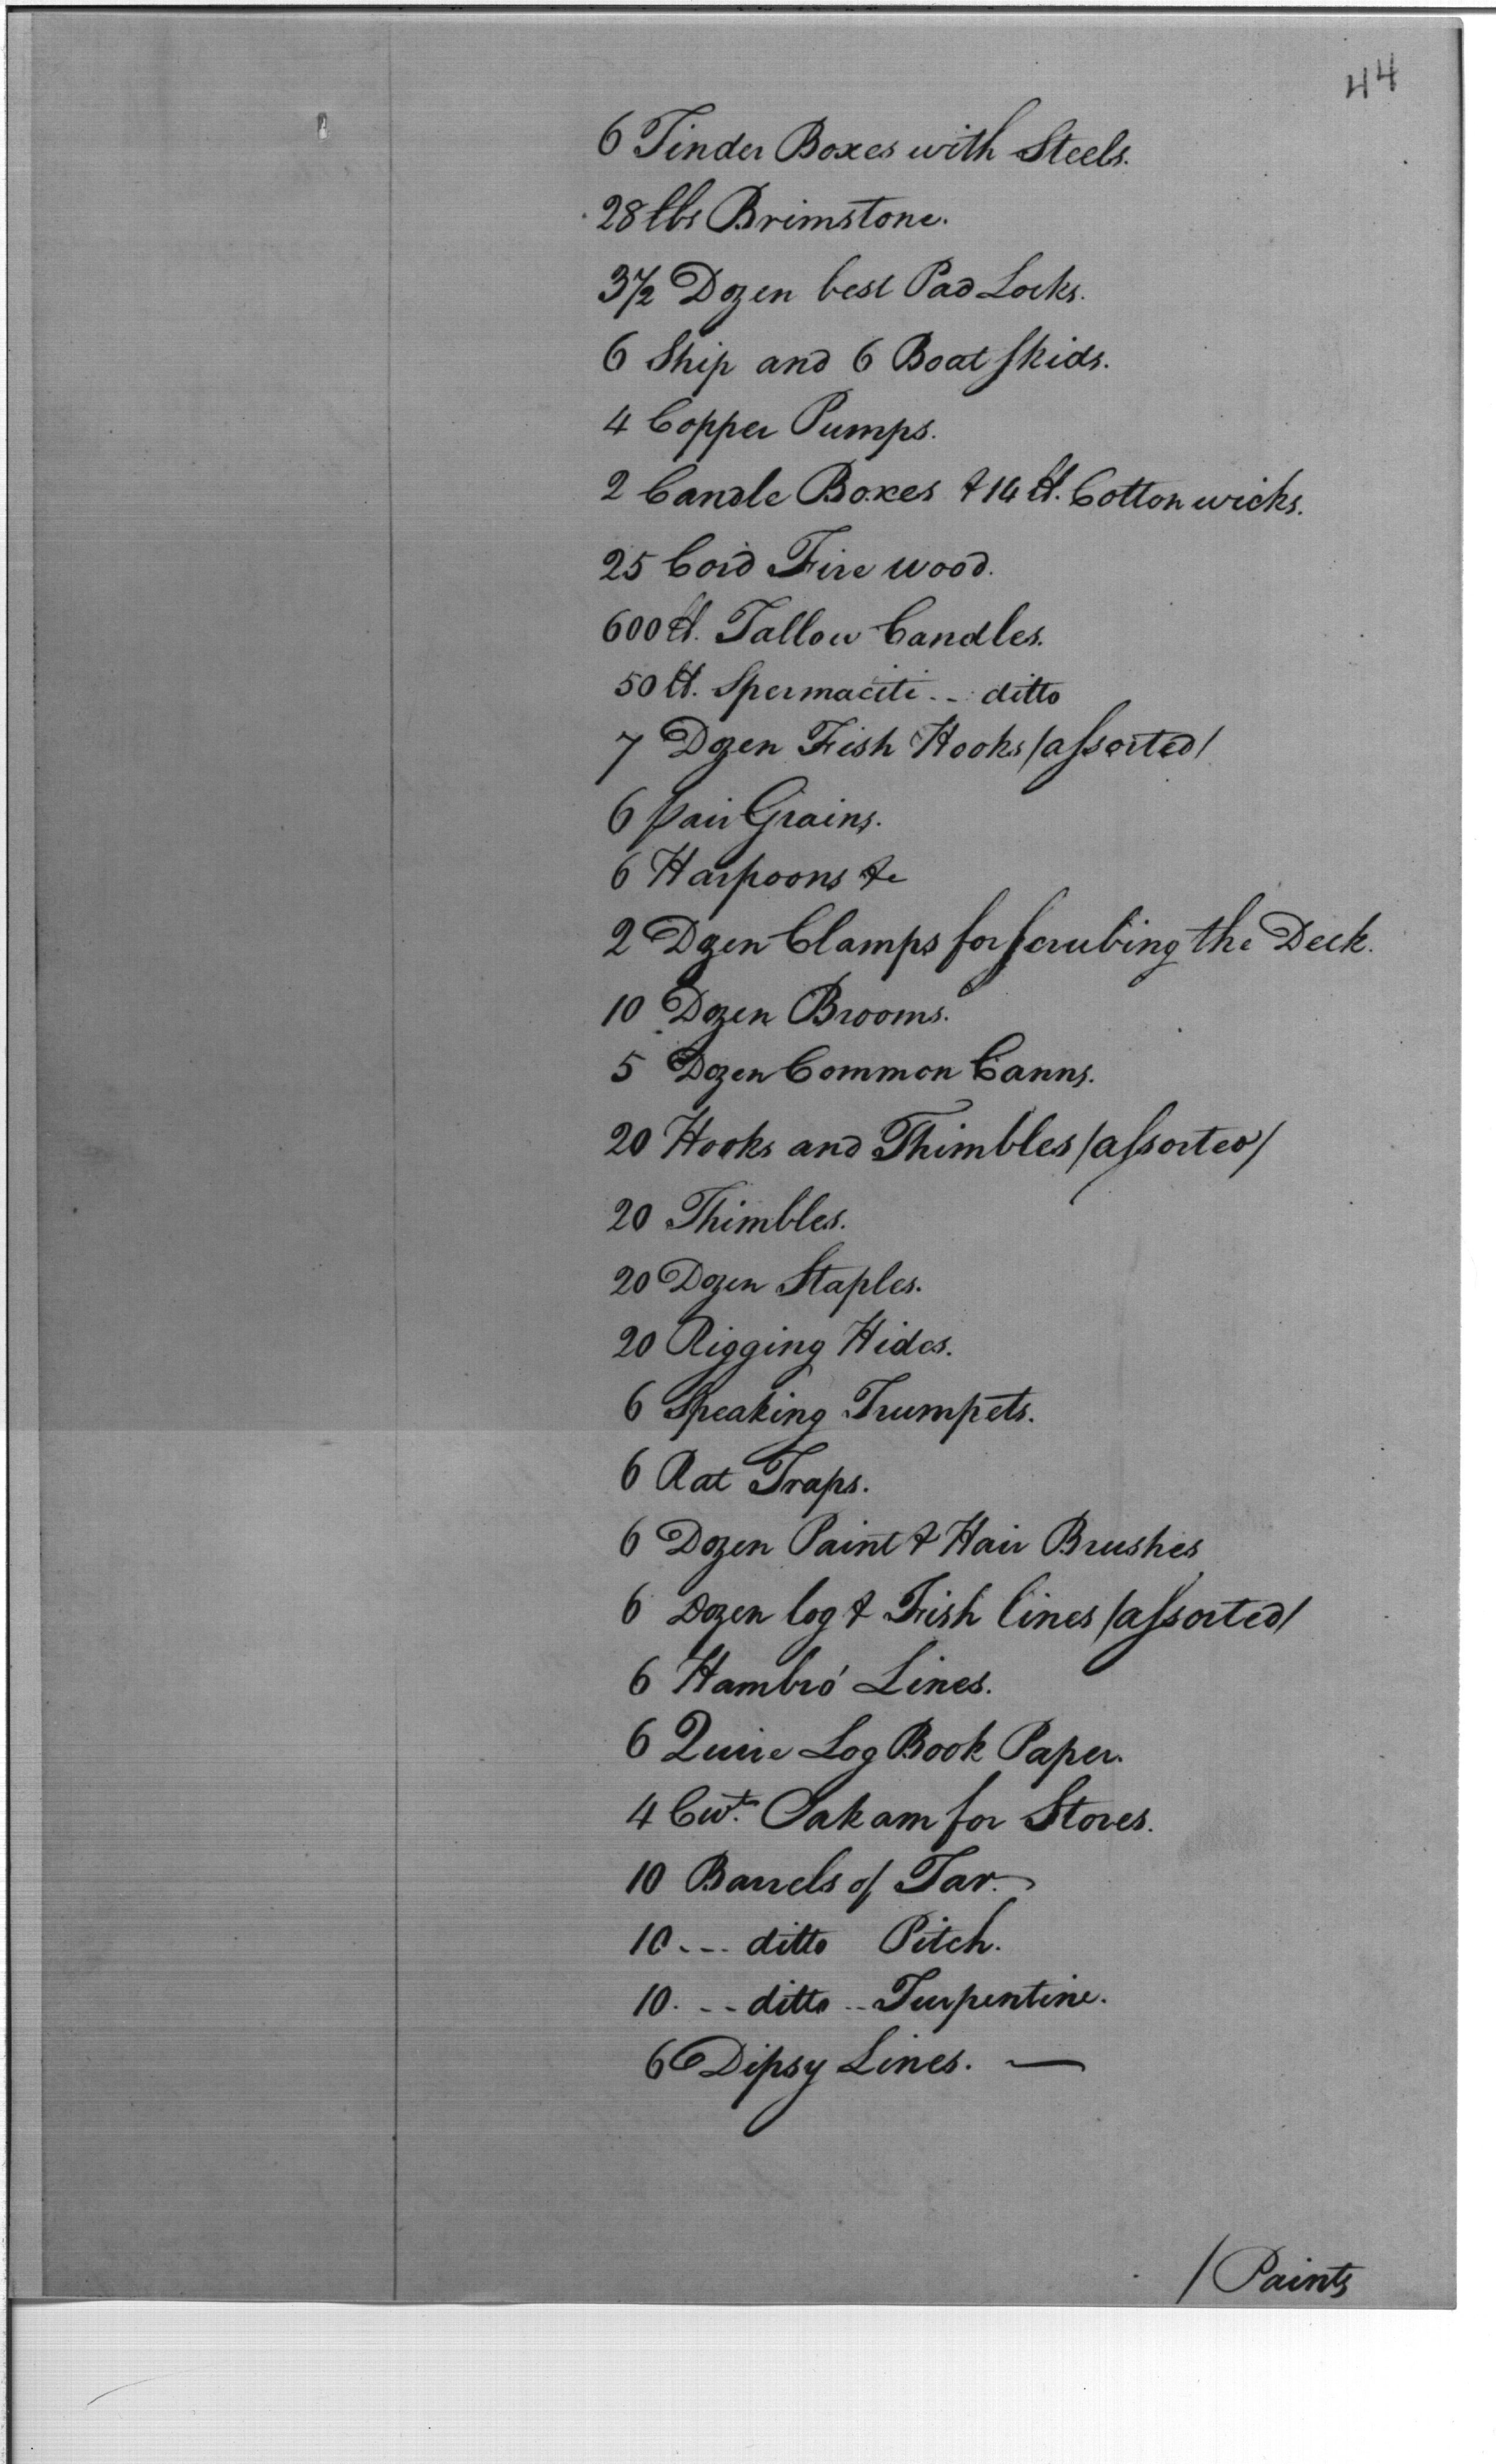 44
6 Tinder Boxes with Steels.
28 lbs Brimstone.
3½ Dozen best Pad Locks.
6 Ship and 6 Boat Skids.
4 Copper Pumps.
2 Candle Boxes & 14 lb. Cotton wicks.
25 Cord Fire wood.
600 lb. Tallow Candles.
50 lb. Spermaciti -- ditto
7 Dozen Fish Hooks /assorted/
6 pair Grains.
6 Harpoons &c
2 Dozen Clamps for scrubing the Deck.
10 Dozen Brooms.
5 Dozen Common Canns.
20 Hooks and Thimbles /assorted/
20 Thimbles.
20 Dozen Staples.
20 Rigging Hides.
6 Speaking Trumpets.
6 Rat Traps.
6 Dozen Paint & Hair Brushes
6 Dozen log & Fish lines /assorted/
6 Hambro' Lines.
6 Quire Log Book Paper.
4 Cwt. Oakam for Stores.
10 Barrels of Tar.
10 --- ditto Pitch.
10. -- ditto -- Turpentine.
6 Dipsy Lines. —
/ Paints